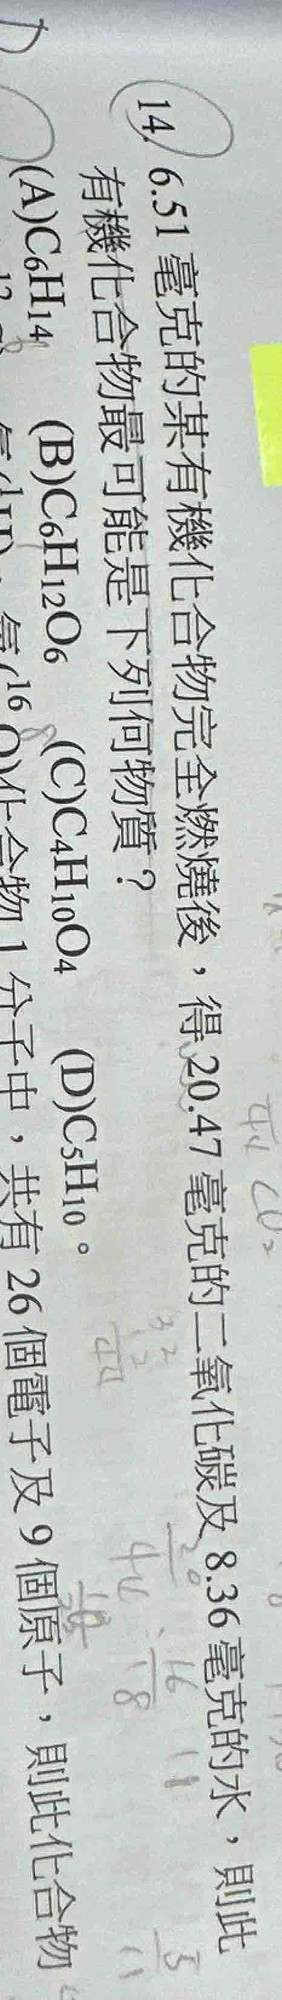 14. 6.51 毫克的某有機化合物完全燃燒後，得 20.47 毫克的二氧化碳及 8.36 毫克的水，則此
有機化合物最可能是下列何物質？
(A)C₆H₁₄ (B)C₆H₁₂O₆ (C)C₄H₁₀O₄ (D)C₅H₁₀。
化合物 1 分子中，共有 26 個電子及 9 個原子，則此化合物
44 CO₂